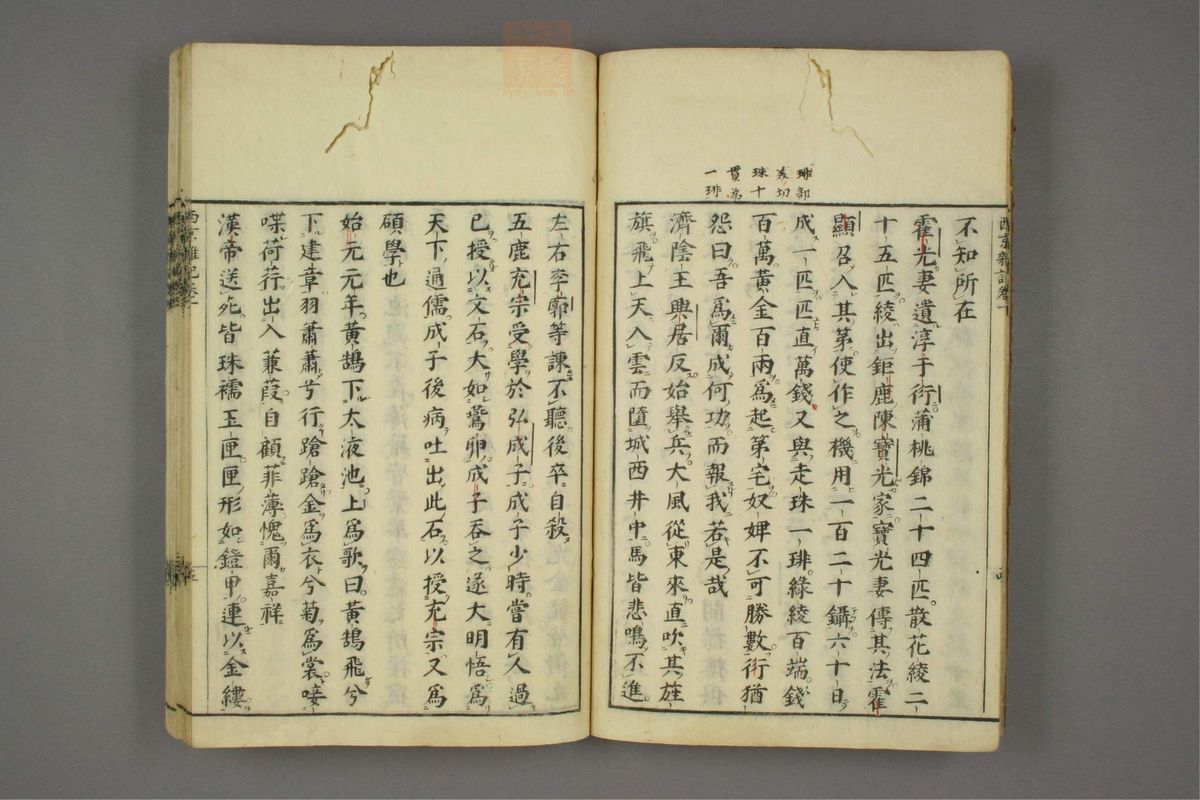 琲部
美切
珠十
貫為
一琲
西京雜記卷一
不知所在
霍光妻遺淳于衍蒲桃錦二十四匹散花綾二
十五匹綾出鉅鹿陳寶光家寶光妻傳其法霍
顯召入其第使作之機用一百二十鑷六十日
成一匹匹直萬錢又與走珠一琲綠綾百端錢
百萬黃金百兩為起第宅奴婢不可勝數衍猶
怨曰吾為爾成何功而報我若是哉
濟陰王興居反始舉兵大風從東來直吹其旌
旗飛上天入雲而墮城西井中馬皆悲鳴不進
左右李廓等諫不聽後卒自殺
五鹿充宗受學於弘成子成子少時嘗有人過
已授以文石大如鷰卵成子吞之遂大明悟為
天下通儒成子後病吐出此石以授充宗又為
碩學也
始元元年黃鵠下太液池上為歌曰黃鵠飛兮
下建章羽蕭蕭兮行蹌蹌金為衣兮菊為裳唼
喋荷荇出入蒹葭自顧菲薄愧爾嘉祥
漢帝送死皆珠襦玉匣匣形如鎧甲連以金縷
西京雜記卷一